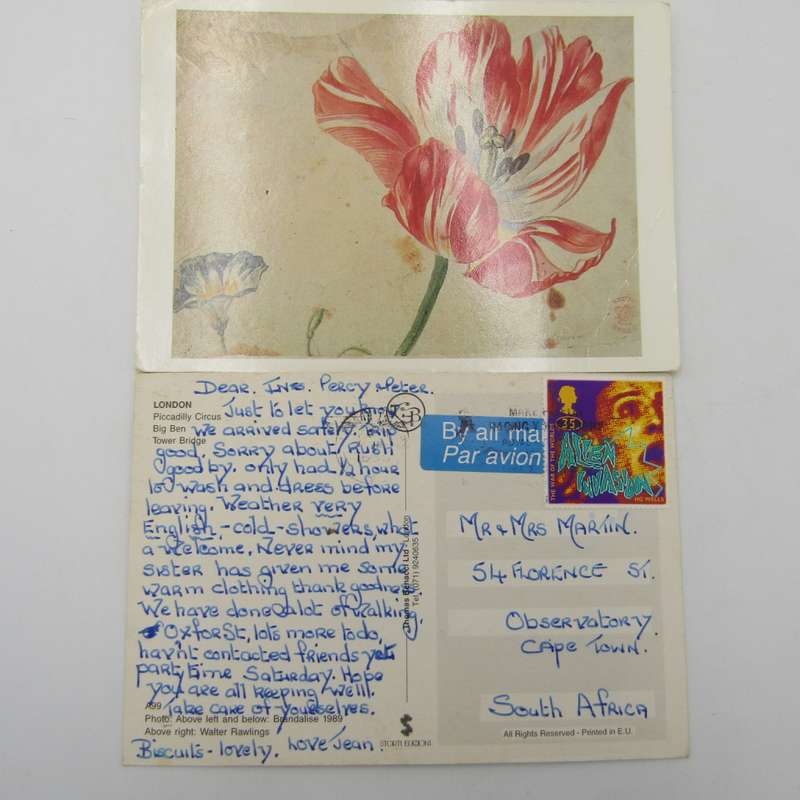 Dear. Ins. Percy. Peter.
LONDON
Piccadilly Circus
Big Ben
Tower Bridge
Just to let you know
we arrived safely. Trip
good. Sorry about Rush
good by. only had ½ hour
to wash and dress before
leaving. Weather very
English - cold - showers, what
a welcome. Never mind my
sister has given me some
warm clothing thank goodness.
We have done a lot of walking.
Oxfor St, lots more to do,
hav'nt contacted friends yet
party time Saturday. Hope
you are all keeping well.
Take care of yourselves.
A99
Photo: Above left and below: Brandalise 1989
Above right: Walter Rawlings
Biscuits - lovely. Love Jean.
Thomas Benacci Ltd - London
Tel. (071) 9240635
STORTI EDIZIONI
By air mail
Par avion
35
THE WAR OF THE WORLDS
ALIEN INVASION
HG WELLS
Mr & Mrs Martin.
54 Florence St.
Observatory.
Cape Town.
South Africa
All Rights Reserved - Printed in E.U.